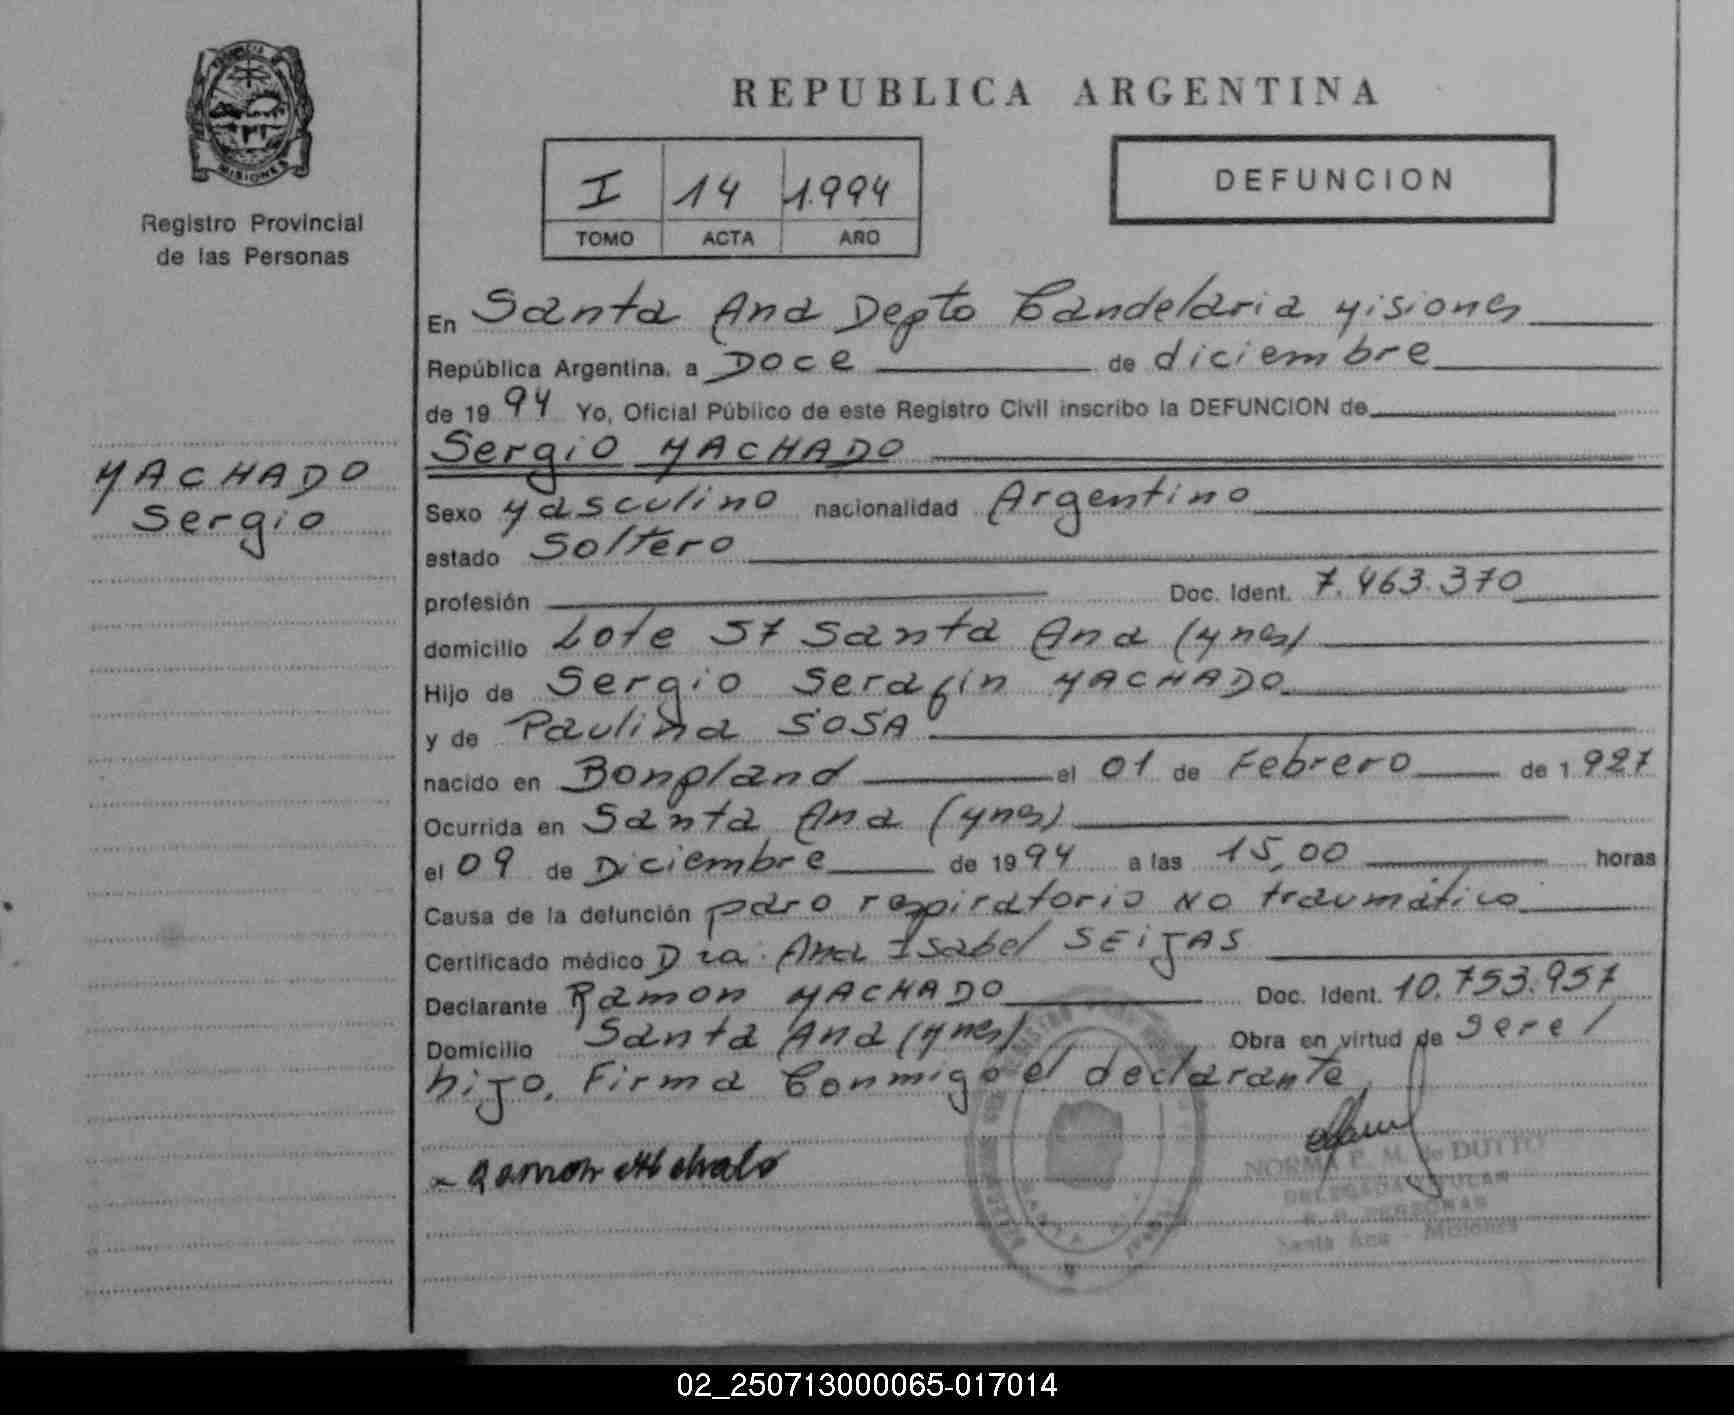 PROVINCIA DE MISIONES
Registro Provincial
de las Personas
MACHADO
Sergio
REPUBLICA ARGENTINA
I 14 1.994
TOMO ACTA AÑO
DEFUNCION
En Santa Ana Depto Candelaria Misiones
República Argentina, a Doce de diciembre
de 1994 Yo, Oficial Público de este Registro Civil inscribo la DEFUNCION de
Sergio MACHADO
Sexo Masculino nacionalidad Argentino
estado Soltero
profesión Doc. Ident. 7.463.370
domicilio Lote 57 Santa Ana (Mnes)
Hijo de Sergio Serafin MACHADO
y de Paulina SOSA
nacido en Bonpland el 01 de Febrero de 1927
Ocurrida en Santa Ana (Mnes)
el 09 de Diciembre de 1994 a las 15,00 horas
Causa de la defunción paro respiratorio no traumático
Certificado médico Dra. Ana Isabel SEIJAS
Declarante Ramon MACHADO Doc. Ident. 10.753.957
Domicilio Santa Ana (Mnes) Obra en virtud de ser el
hijo. Firma Conmigo el declarante
Ramon Machado
NORMA E. M. de DUTTO
DELEGADA TITULAR
R. P. PERSONAS
Santa Ana - Misiones
02_250713000065-017014